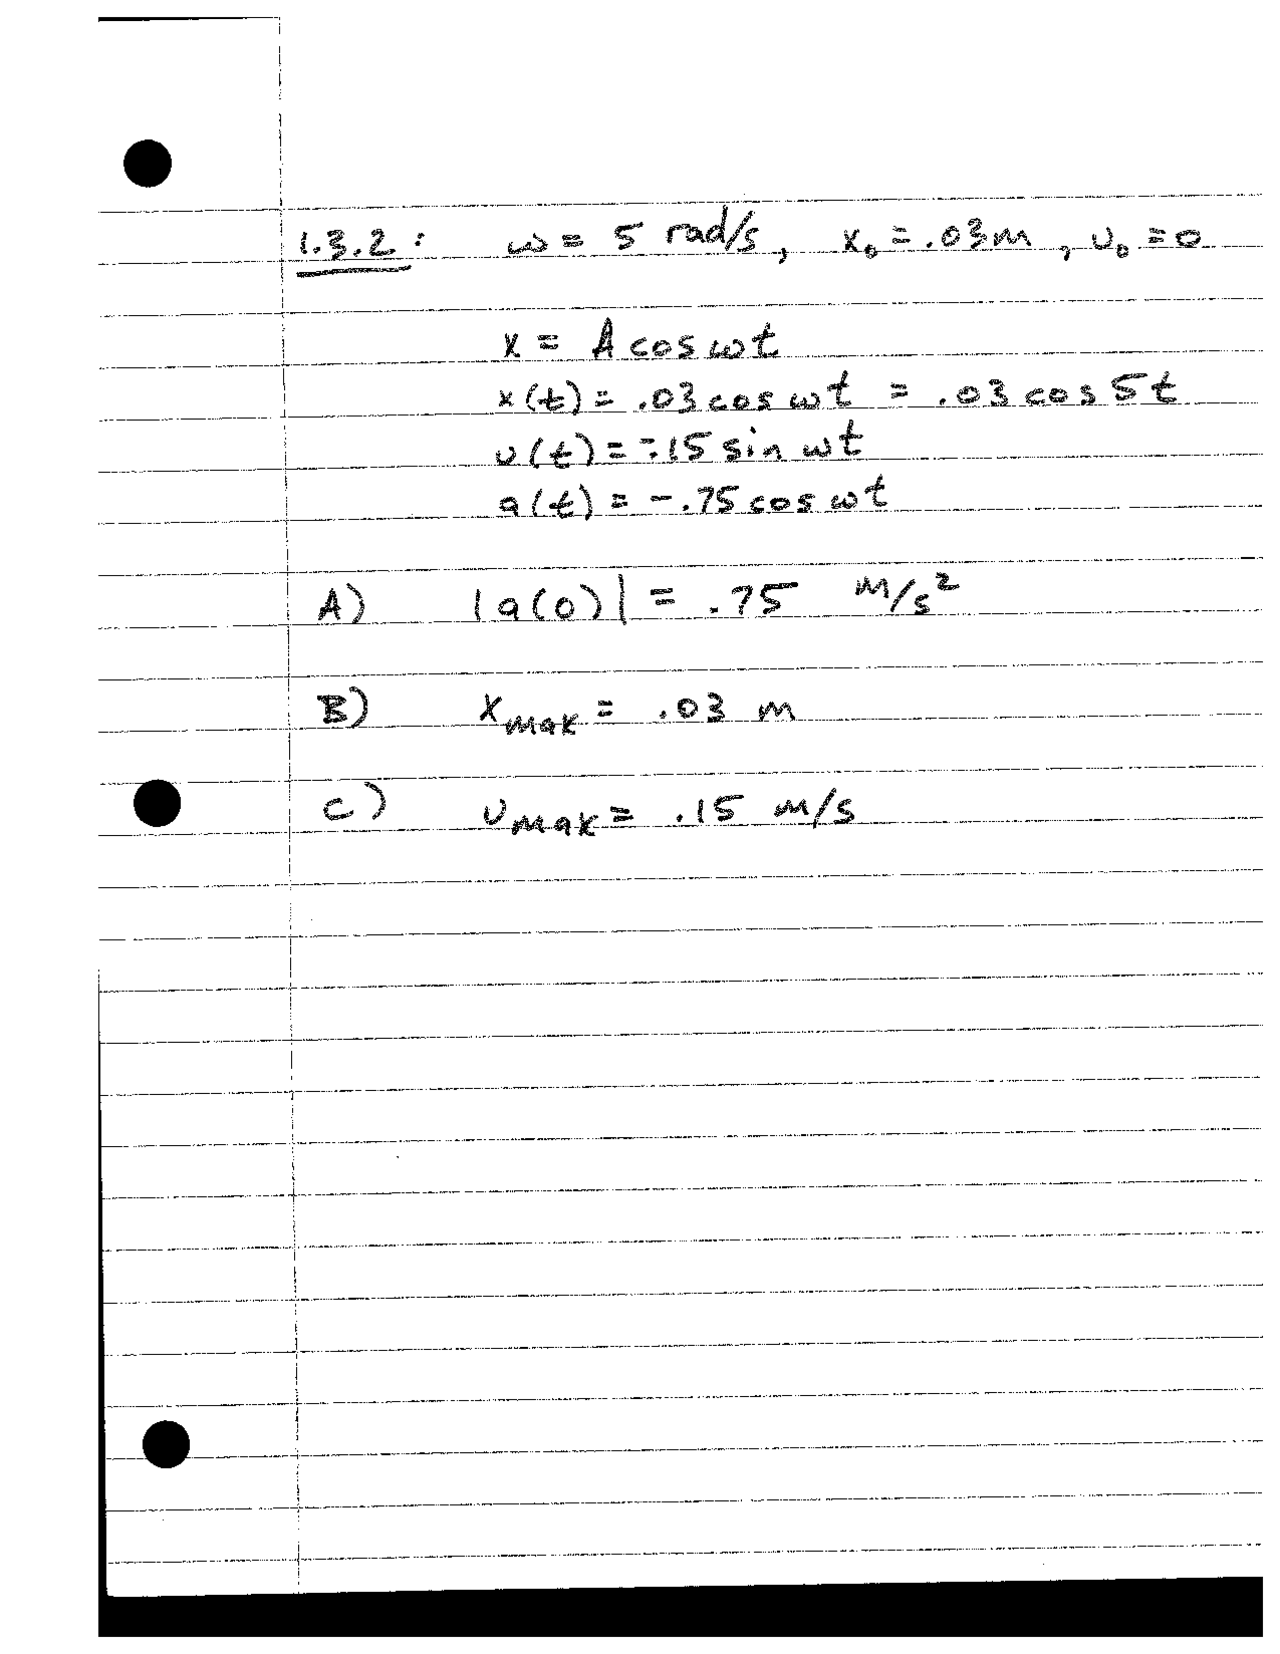 1.3.2: ω = 5 rad/s, x₀ = .03 m, υ₀ = 0
x = A cos ωt
x(t) = .03 cos ωt = .03 cos 5t
υ(t) = -.15 sin ωt
a(t) = -.75 cos ωt
A) |a(0)| = .75 m/s²
B) xmax = .03 m
C) υmax = .15 m/s